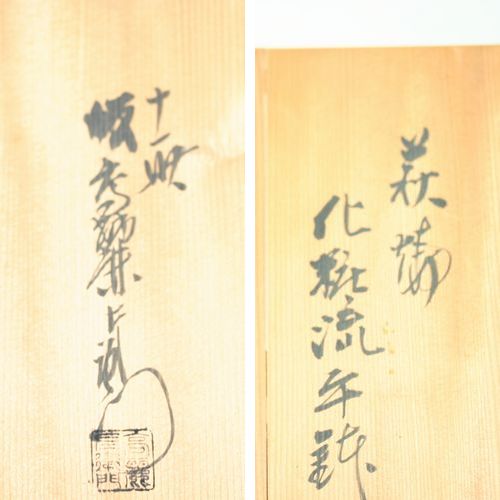 十一世
坂高麗左衛門
萩焼
化粧流平鉢